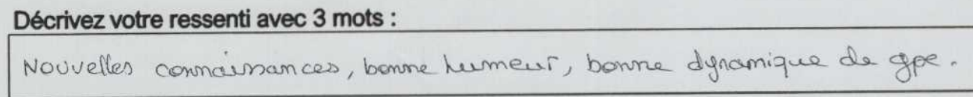 Décrivez votre ressenti avec 3 mots :
Nouvelles connaissances, bonne humeur, bonne dynamique de gpe.